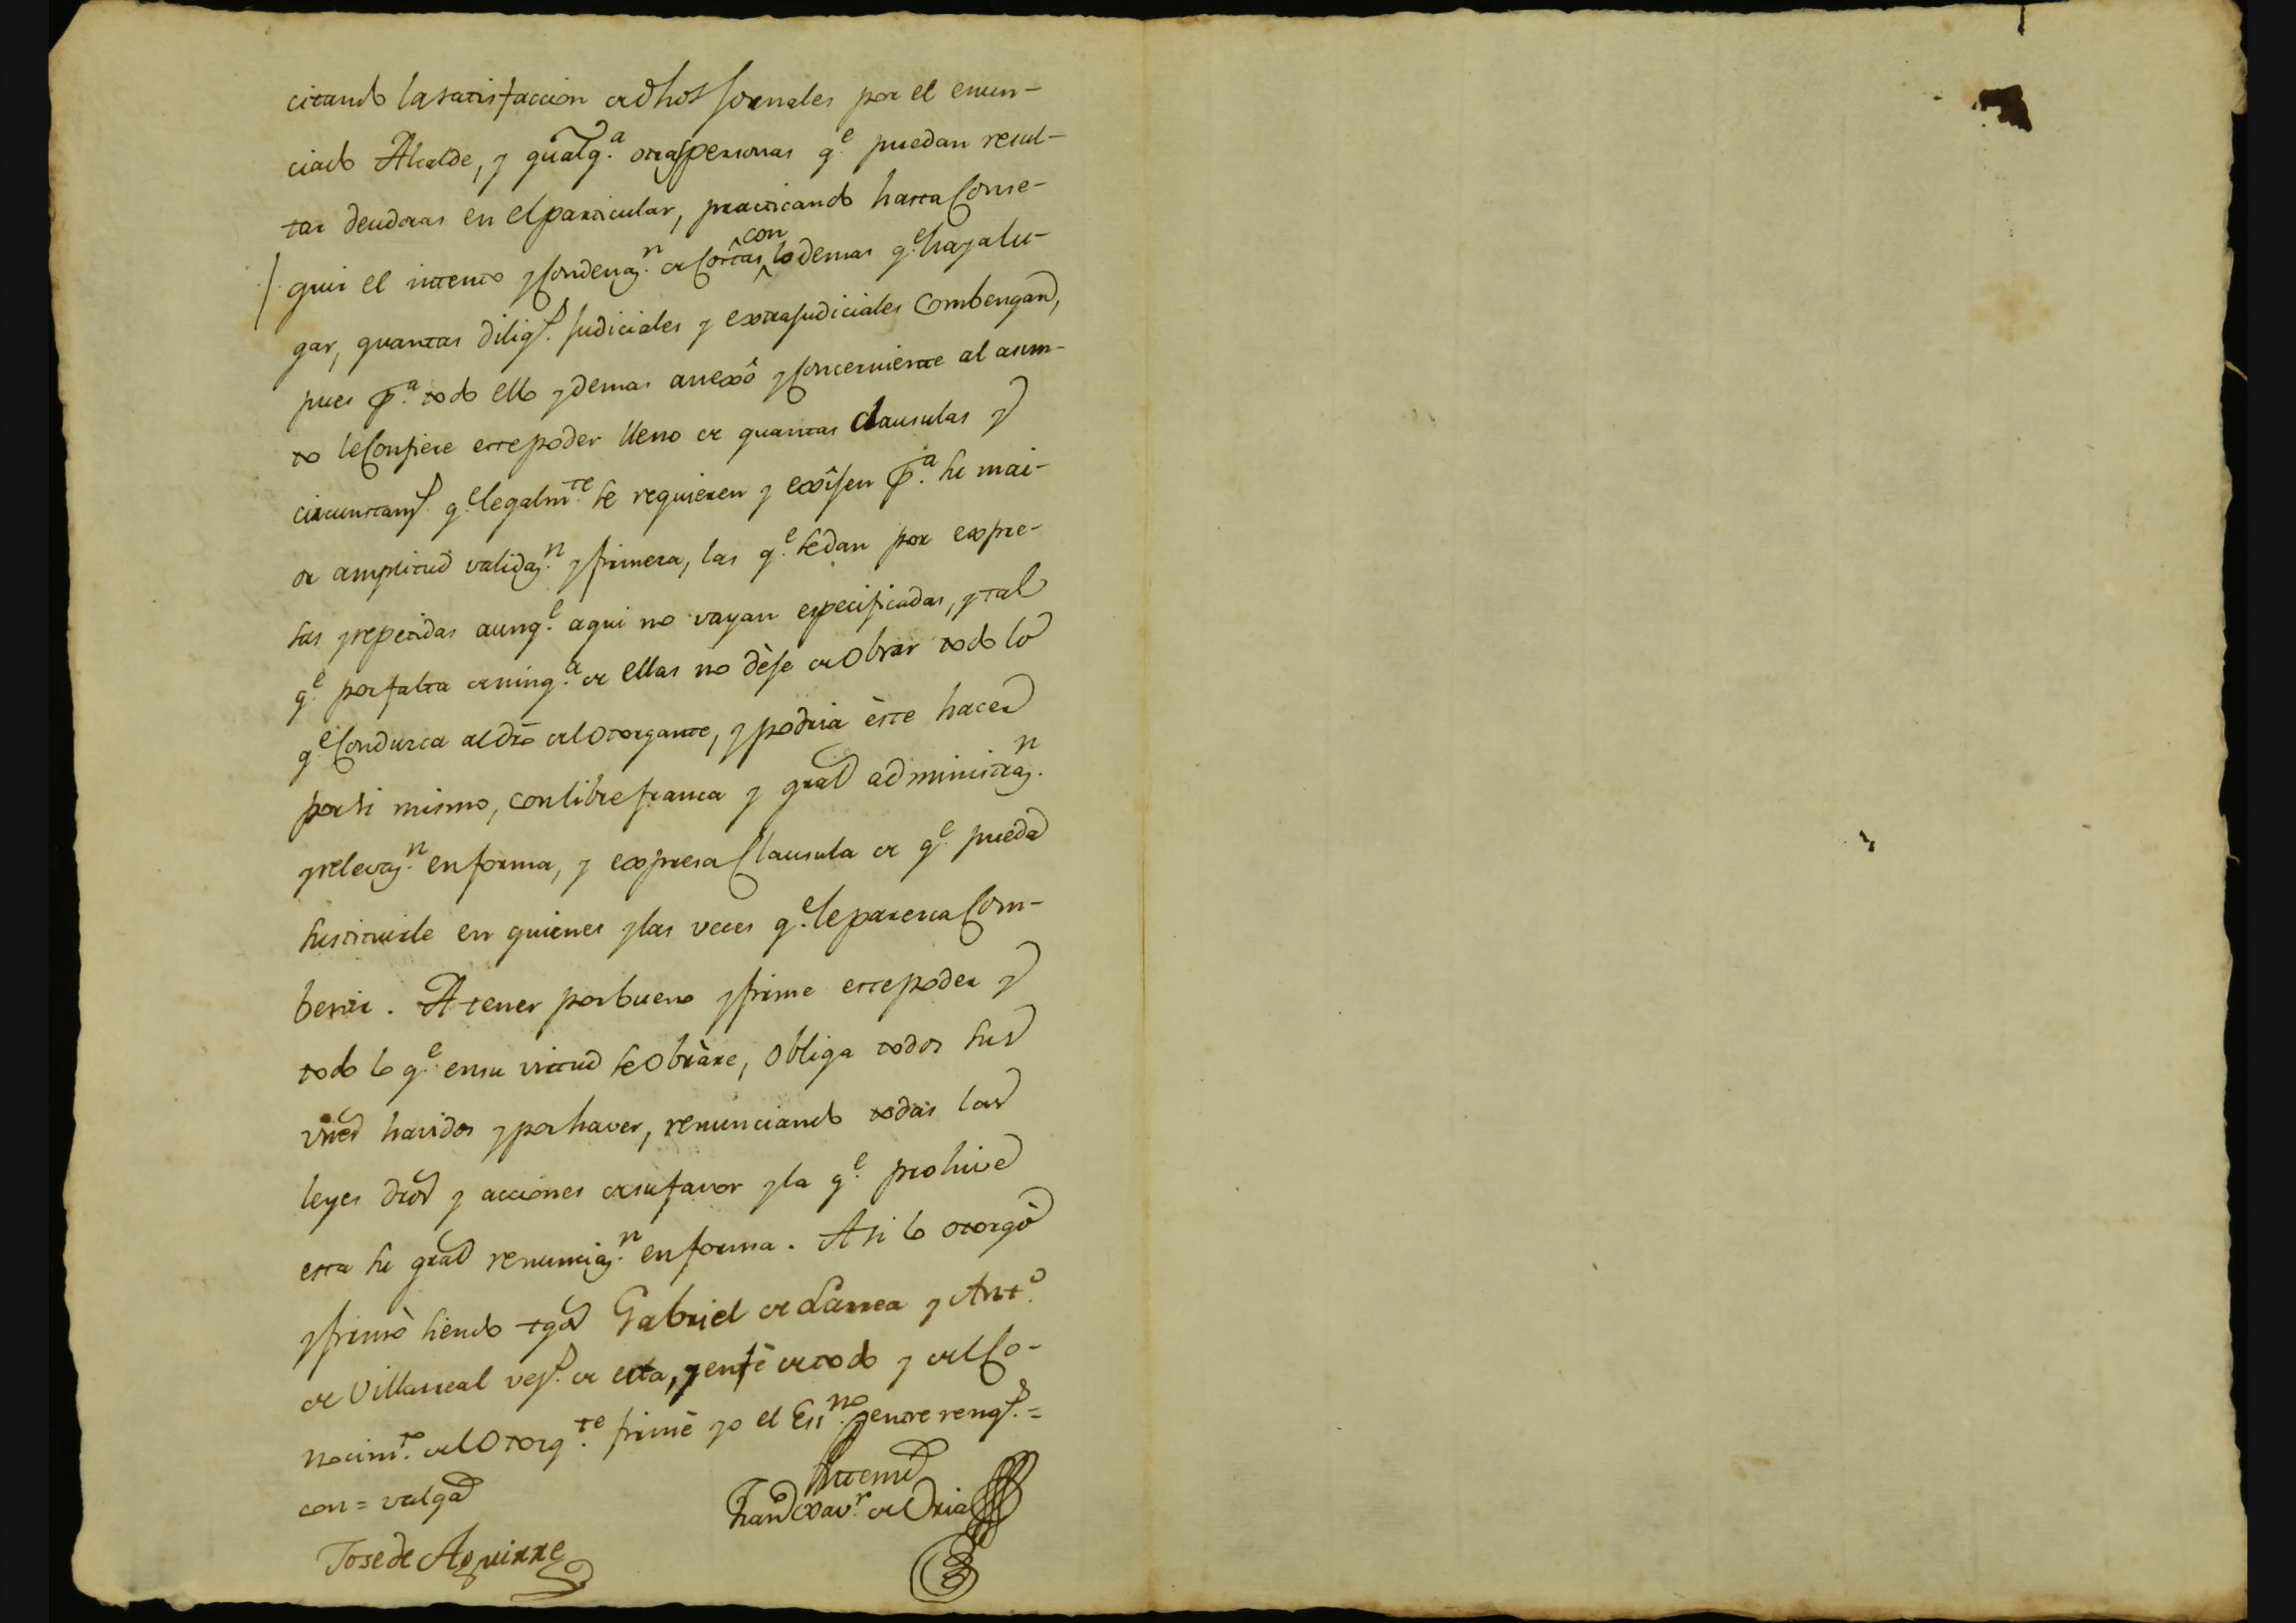 citando la satisfaccion de dhos Jornales por el enun-
ciado Alcalde, y qualq.a otras personas q.e puedan resul-
tar deudoras en el particular, practicando hasta Conse-
guir el intento y Condenaz.n de Costas con lo demas q.e haya lu-
gar, quantas dilig.s Judiciales y extrajudiciales Combengan,
pues p.a todo ello y demas anexô y Concerniente al asum-
to le Confiere este poder lleno de quantas Clausulas y
circunstanz.s q.e legalm.te se requieren y exîjen p.a su mai-
or amplitud validaz.n y firmeza, las q.e se dan por expre-
sas y repetidas aunq.e aqui no vayan especificadas, y tal
q.e por falta de ning.a de ellas no dèje de Obrar todo lo
q.e Conduzca al dro del Otorgante, y podria èste hacer
por si mismo, con libre franca y gral administraz.n
y relevaz.n en forma, y expresa Clausula de q.e pueda
sustituirle en quienes y las veces q.e le parezca Com-
benir. A tener por bueno y firme este poder y
todo lo q.e en su virtud se Obràre, Obliga todos sus
vnes havidos y por haver, renunciando todas las
leyes dros y acciones de su favor y la q.e prohive
esta su gral renunciaz.n en forma. Asi lo otorgò
y firmò siendo tgos Gabriel de Larrea y Ant.o
de Villarreal vez.s de esta, y en fè de todo y del Co-
nocim.to del Otorg.te firmè yo el Ess.no entre reng.s =
con = valga
Antemi
Fran.co Xav.r de Oria
Jose de Aguirre